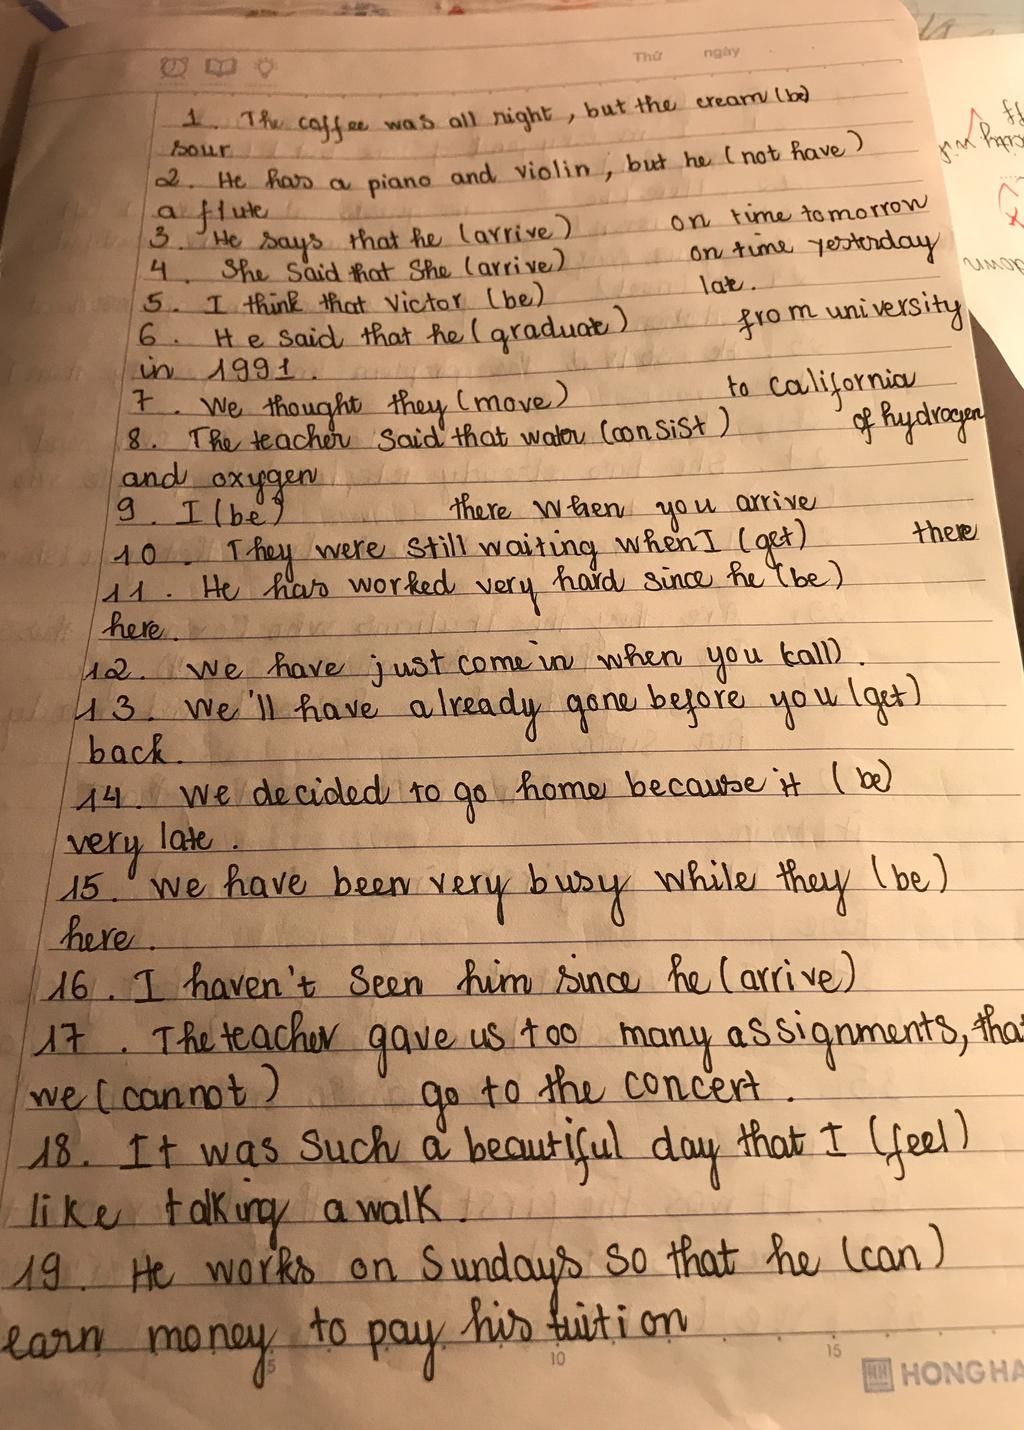 Thứ ngày
1. The coffee was all right, but the cream (be)
sour
2. He has a piano and violin, but he (not have)
a flute
3. He says that he (arrive) on time tomorrow
4. She said that She (arrive) on time yesterday
5. I think that Victor (be) late.
6. He said that he (graduate) from university
in 1991.
7. We thought they (move) to California
8. The teacher said that water (consist) of hydrogen
and oxygen
9. I (be) there when you arrive
10. They were still waiting when I (get) there
11. He has worked very hard since he (be)
here.
12. We have just come in when you (call).
13. We'll have already gone before you (get)
back.
14. We decided to go home because it (be)
very late.
15. We have been very busy while they (be)
here.
16. I haven't seen him since he (arrive)
17. The teacher gave us too many assignments, that
we (cannot) go to the concert.
18. It was such a beautiful day that I (feel)
like talking a walk.
19. He works on Sundays so that he (can)
earn money to pay his tuition
5 10 15
HONG HA